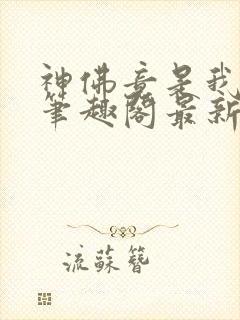 神佛竟是我
笔趣阁最新
流蘇簪